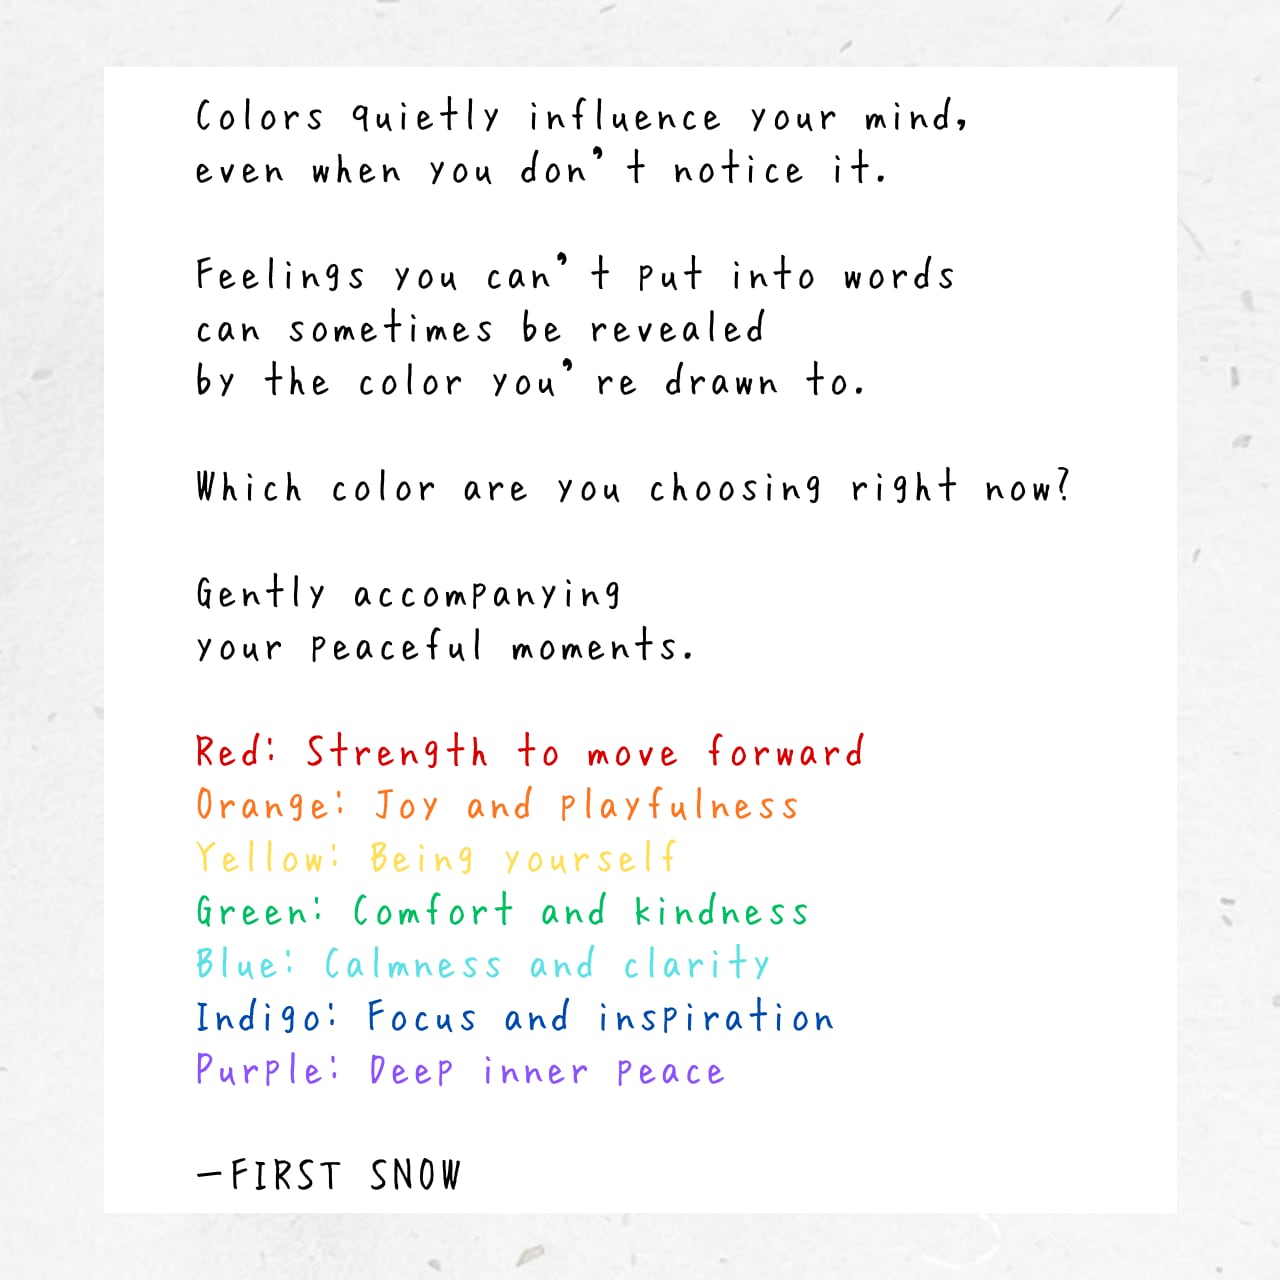 Colors quietly influence your mind,
even when you don't notice it.
Feelings you can't put into words
can sometimes be revealed
by the color you're drawn to.
Which color are you choosing right now?
Gently accompanying
your peaceful moments.
Red: Strength to move forward
Orange: Joy and playfulness
Yellow: Being yourself
Green: Comfort and kindness
Blue: Calmness and clarity
Indigo: Focus and inspiration
Purple: Deep inner peace
—FIRST SNOW